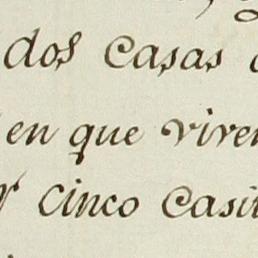 dos casas
en que viven
cinco casit